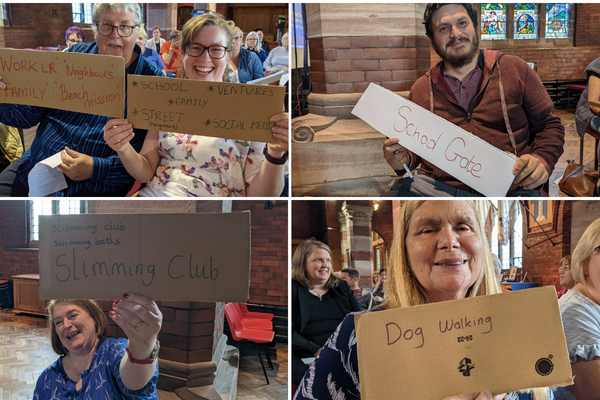 WORK LR 'Neighbours
FAMILY 'Beach
mission'
* SCHOOL * VENTURES
* FAMILY
* STREET
* SOCIAL MEDIA
School Gate
Slimming club
Swimming baths
Slimming Club
Dog Walking
24-22